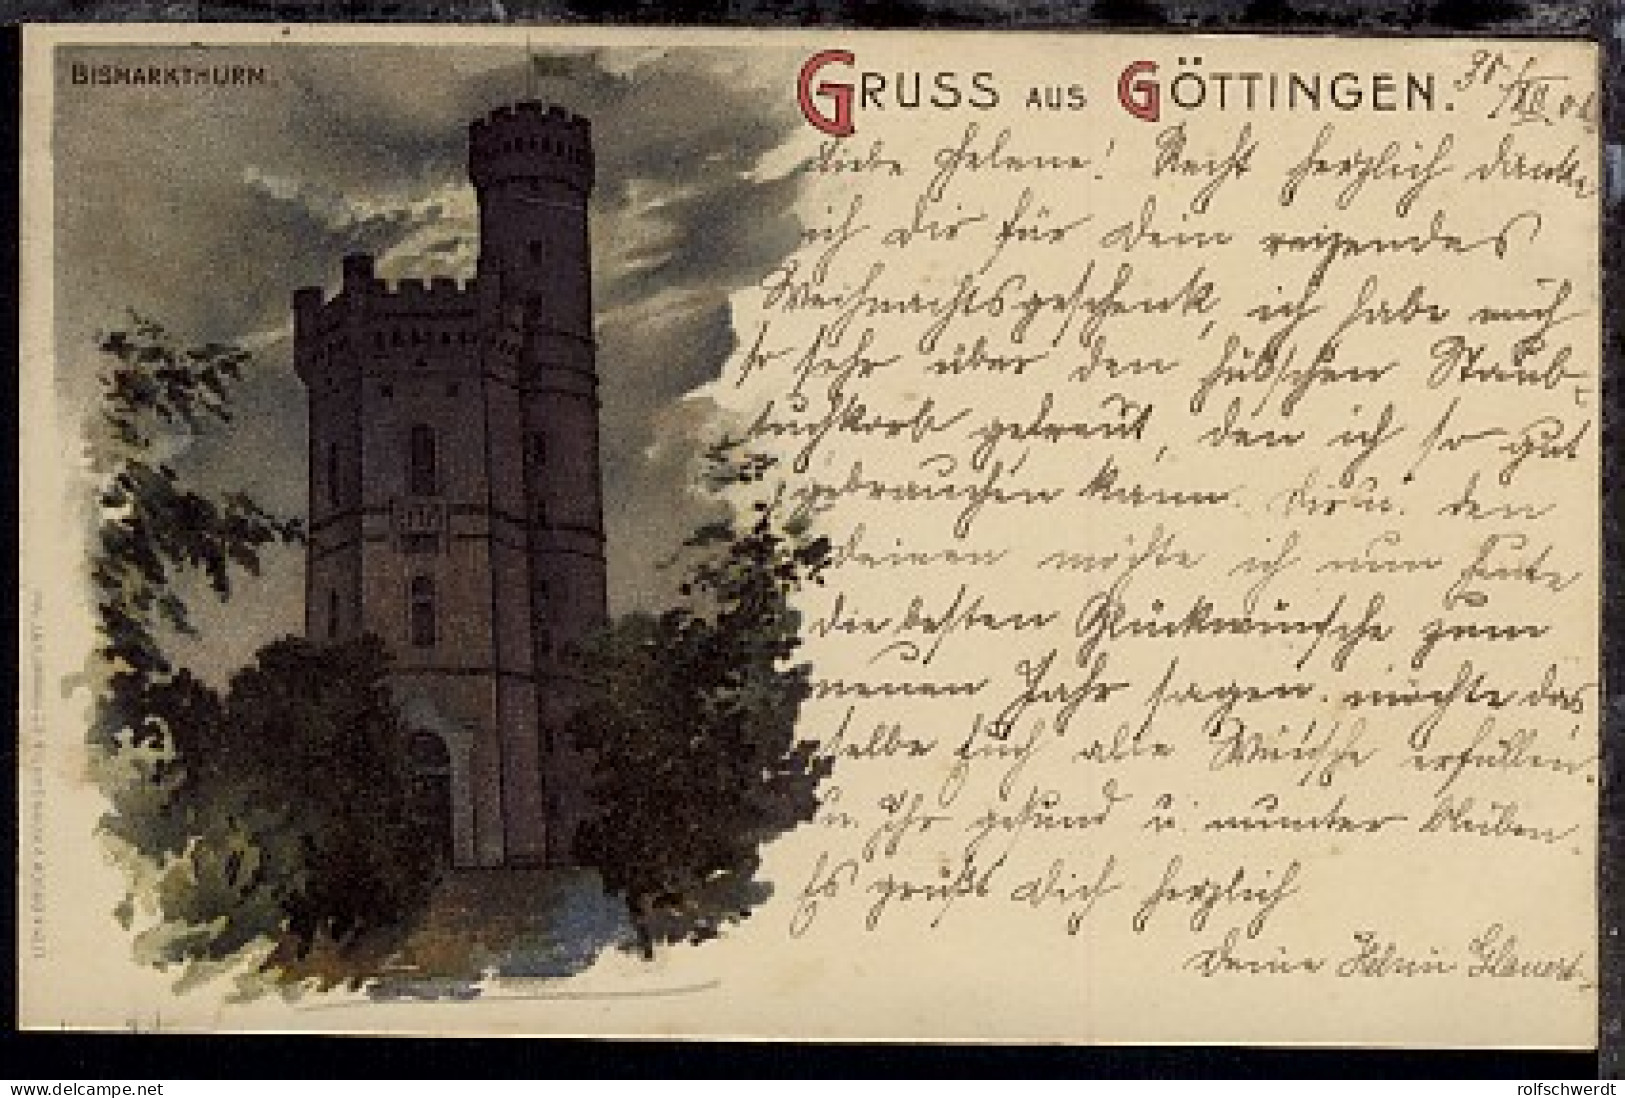 BISMARKTHURM.
GRUSS AUS GÖTTINGEN.
Liebe Helene! Recht herzlich danke
ich Dir für Dein reizendes
Weihnachtsgeschenk, ich habe mich
so sehr über den hübschen Staub-
tuchkorb gefreut, den ich so gut
gebrauchen kann. Dir u. den
Deinen möchte ich nun heute
die besten Glückwünsche zum
neuen Jahr sagen. möchte das
selbe Euch alle Wünsche erfüllen
u. Ihr gesund u. munter bleiben.
Es grüßt Dich herzlich
Deine
delcampe.net
rolfschwerdt